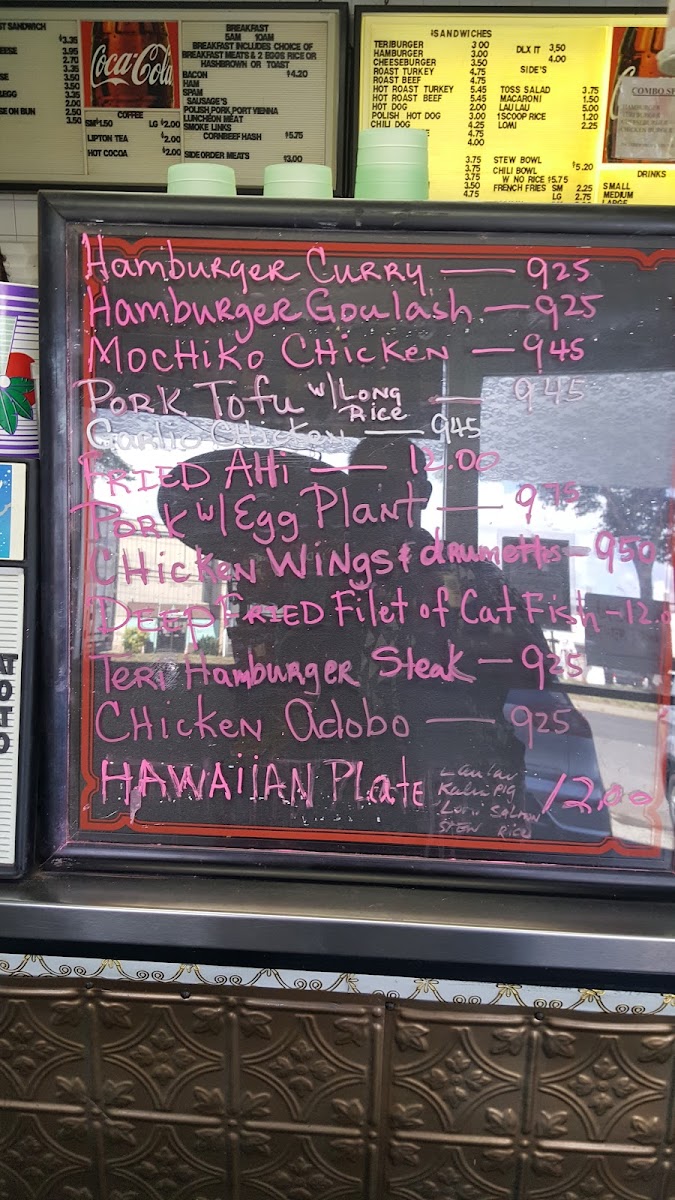 ST SANDWICH
$3.35
3.95
2.70
3.35
3.50
3.35
2.00
2.50
3.50
SE ON BUN
Coca-Cola
COFFEE
SM $1.50 LG $2.00
LIPTON TEA $2.00
HOT COCOA $2.00
BREAKFAST
5AM 10AM
BREAKFAST INCLUDES CHOICE OF
BREAKFAST MEATS & 2 EGGS RICE OR
HASHBROWN OR TOAST
BACON $4.20
HAM
SPAM
SAUSAGE'S
POLISH,PORK,PORT VIENNA
LUNCHEON MEAT
SMOKE LINKS
CORNBEEF HASH $5.75
SIDE ORDER MEATS $3.00
SANDWICHES
TERIBURGER 3 00
HAMBURGER 3.00
CHEESEBURGER 3.50
ROAST TURKEY 4.75
ROAST BEEF 4.75
HOT ROAST TURKEY 5.45
HOT ROAST BEEF 5.45
HOT DOG 2.00
POLISH HOT DOG 3.00
CHILI DOG 4.25
4.75
4.75
4.00
3.75
3.75
3.75
3.50
4.75
DLX IT 3,50
4.00
SIDE'S
TOSS SALAD 3.75
MACARONI 1.50
LAU LAU 5.00
1 SCOOP RICE 1.20
LOMI 2.25
STEW BOWL $5.20
CHILI BOWL
W NO RICE $5.75
FRENCH FRIES SM 2.25
LG 2.75
COMBO SP
HAMBURGER
DRINKS
SMALL
MEDIUM
LARGE
Hamburger Curry — 925
Hamburger Goulash — 925
Mochiko Chicken — 945
Pork Tofu w/ Long Rice — 945
Garlic Chicken — 945
Fried Ahi — 12.00
Pork w/ Egg Plant — 975
Chicken Wings & drumettes — 950
Deep Fried Filet of Cat Fish — 12.0
Teri Hamburger Steak — 925
Chicken Adobo — 925
Hawaiian Plate Lau Lau Kalua Pig Lomi Salmon Stew Rice 12.00